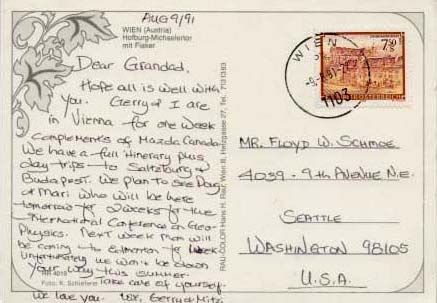 AUG 9/91
WIEN (Austria)
Hofburg-Michaelertor
mit Fiaker
Dear Grandad,
Hope all is well with
you. Gerry & I are
in Vienna for one week
complements of Mazda Canada.
We have a full itinerary plus
day trips to Saltzburg &
Budapest. We plan to see Doug
& Mari who will be here
tomorrow for 2 weeks for the
International Conference on Geo
Physics. Next week Mari will
be coming to Edmonton for 1 week
Unfortunatly we won't be down
your way this summer.
Take care of yourself.
We love you. Gerry & Mitzi
RAU COLOR Hans H. Rau, Wien III, Tel. 7131383
HR 4018
Foto: K. Schieferer
WIEN
1103
7.50
REPUBLIK ÖSTERREICH
MR. FLOYD W. SCHMOE
4039 - 9TH AVENUE N.E.
SEATTLE
WASHINGTON 98105
U.S.A.